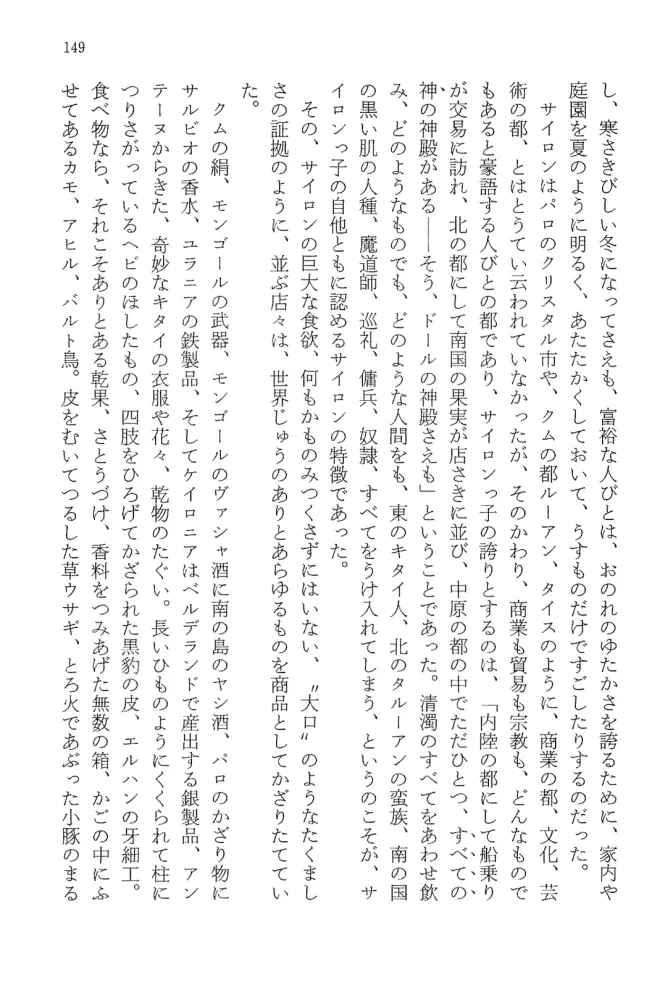 149
し、寒さきびしい冬になってさえも、富裕な人びとは、おのれのゆたかさを誇るために、家内や
庭園を夏のように明るく、あたたかくしておいて、うすものだけですごしたりするのだった。
サイロンはパロのクリスタル市や、クムの都ルーアン、タイスのように、商業の都、文化、芸
術の都、とはとうてい云われていなかったが、そのかわり、商業も貿易も宗教も、どんなもので
もあると豪語する人びとの都であり、サイロンっ子の誇りとするのは、「内陸の都にして船乗り
が交易に訪れ、北の都にして南国の果実が店さきに並び、中原の都の中でただひとつ、すべての
神の神殿がある――そう、ドールの神殿さえも」ということであった。清濁のすべてをあわせ飲
み、どのようなものでも、どのような人間をも、東のキタイ人、北のタルーアンの蛮族、南の国
の黒い肌の人種、魔道師、巡礼、傭兵、奴隷、すべてをうけ入れてしまう、というのこそが、サ
イロンっ子の自他ともに認めるサイロンの特徴であった。
その、サイロンの巨大な食欲、何もかものみつくさずにはいない、〝大口〟のようなたくまし
さの証拠のように、並ぶ店々は、世界じゅうのありとあらゆるものを商品としてかざりたててい
た。
クムの絹、モンゴールの武器、モンゴールのヴァシャ酒に南の島のヤシ酒、パロのかざり物に
サルビオの香水、ユラニアの鉄製品、そしてケイロニアはベルデランドで産出する銀製品、アン
テーヌからきた、奇妙なキタイの衣服や花々、乾物のたぐい。長いひものようにくくられて柱に
つりさがっているヘビのほしたもの、四肢をひろげてかざられた黒豹の皮、エルハンの牙細工。
食べ物なら、それこそありとある乾果、さとうづけ、香料をつみあげた無数の箱、かごの中にふ
せてあるカモ、アヒル、バルト鳥。皮をむいてつるした草ウサギ、とろ火であぶった小豚のまる